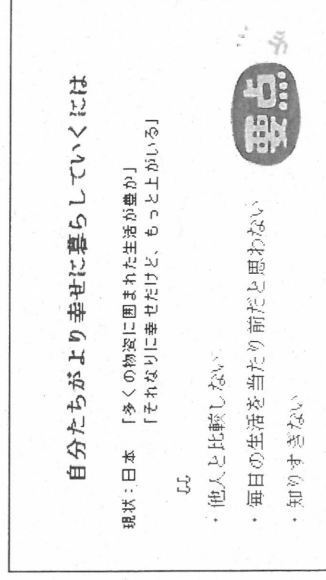 自分たちがより幸せに暮らしていくには
現状：日本 「多くの物資に囲まれた生活が豊か」
「それなりに幸せだけど、もっと上がいる」
・他人と比較しない
・毎日の生活を当たり前だと思わない
・知りすぎない
重点